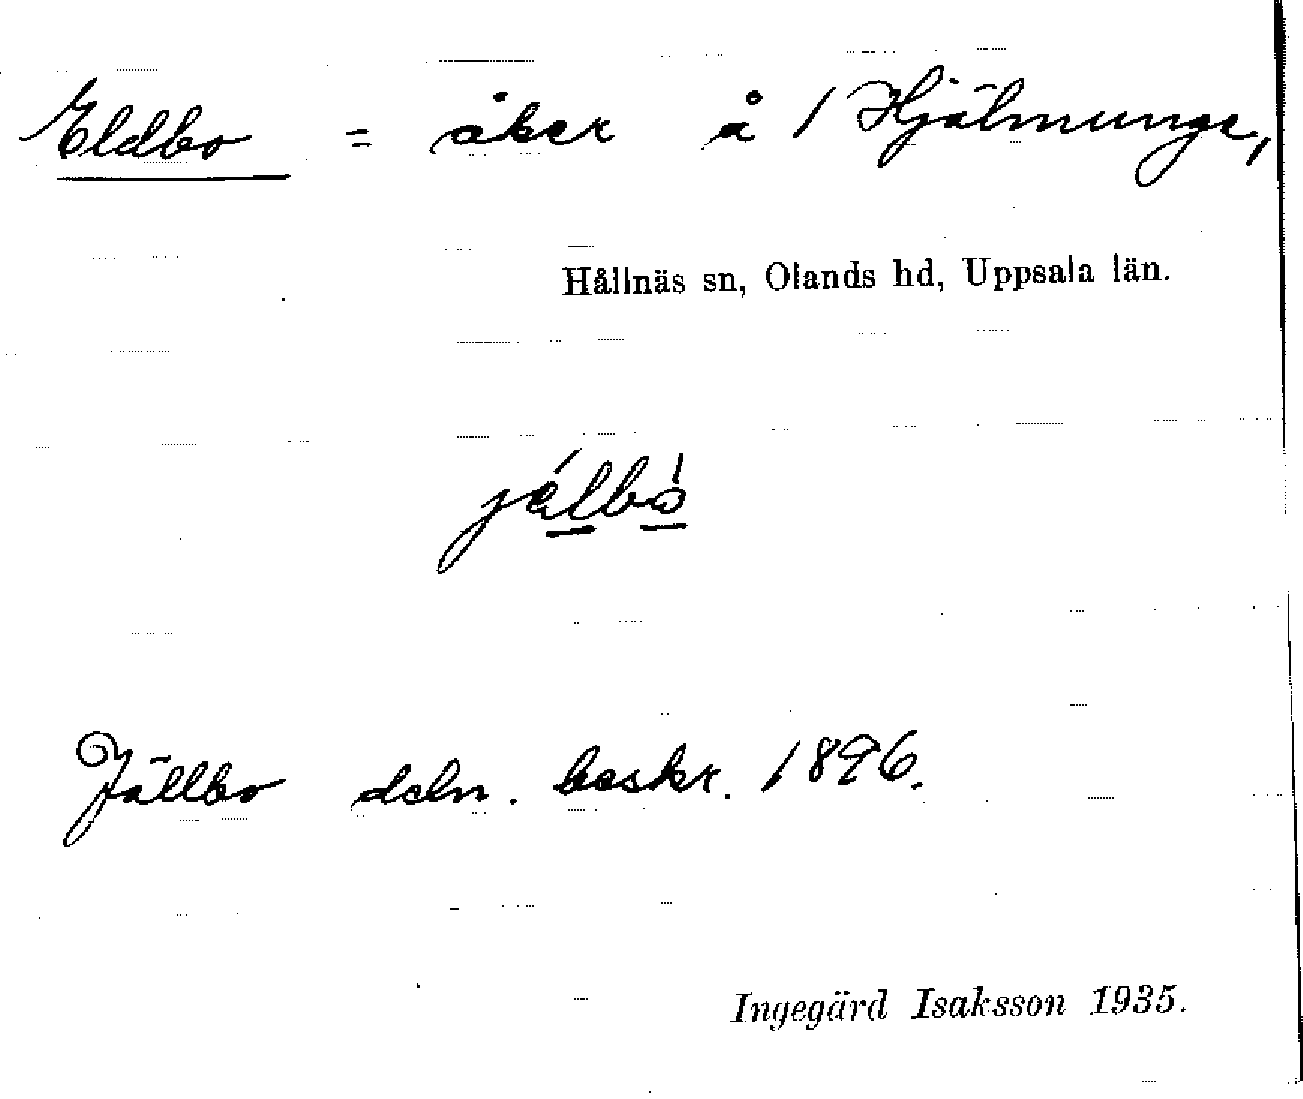 Eldbo = åker å 1 Hjälmunge,
Hållnäs sn, Olands hd, Uppsala län.
jélbò
Jällbo deln. beskr. 1896.
Ingegärd Isaksson 1935.